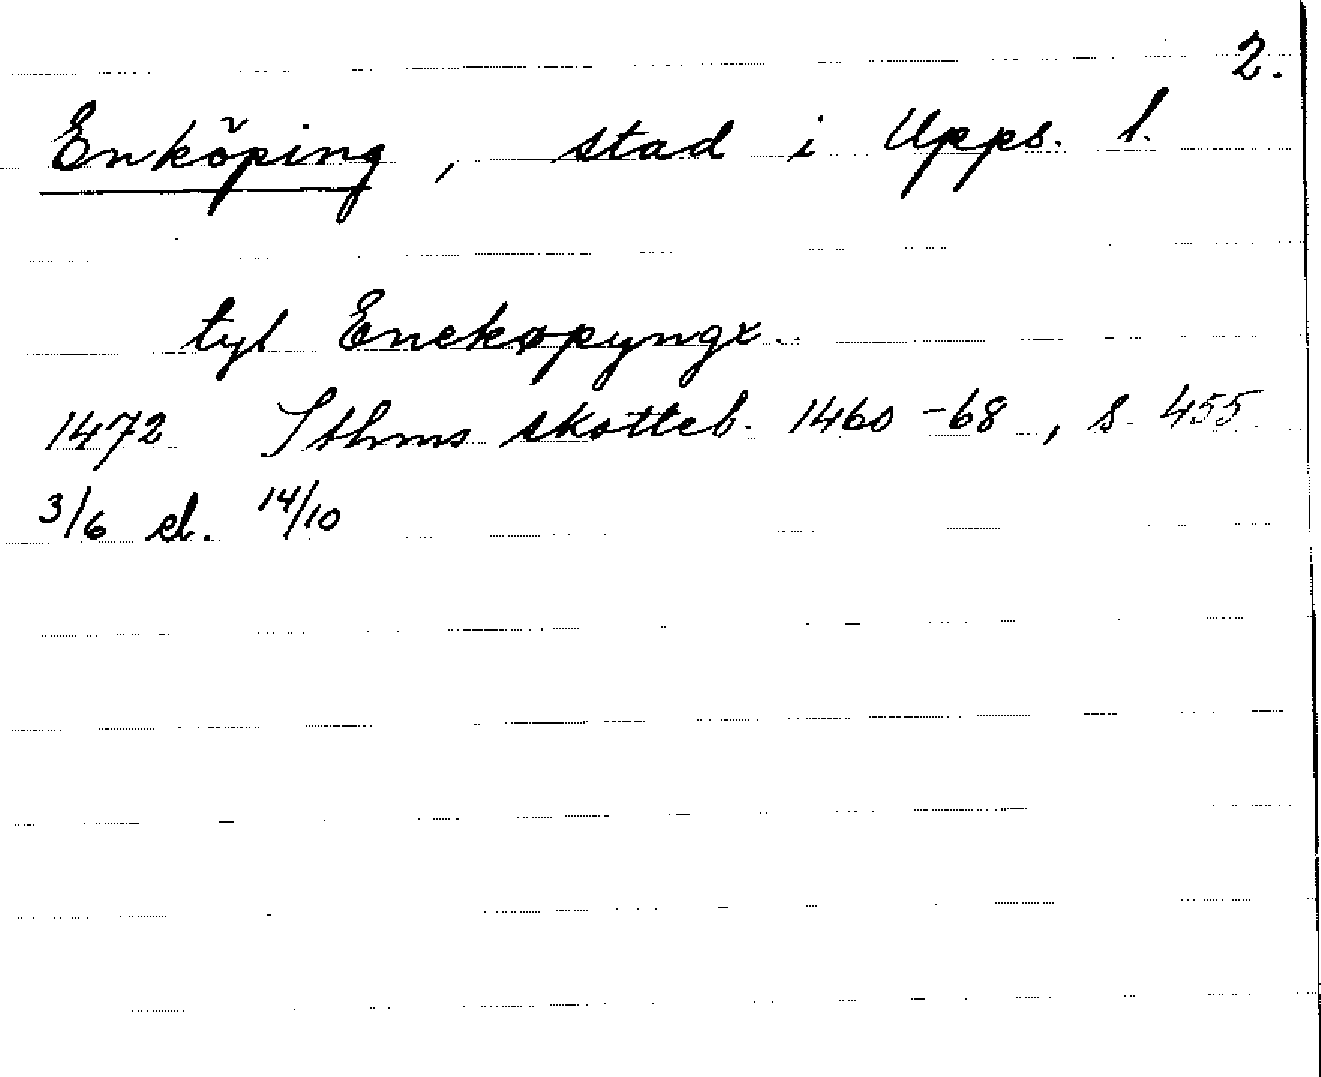 2.
Enköping, stad i Upps. l.
tyl Enekopynge
1472 Sthms skotteb. 1460-68, s 455
3/6 el. 14/10